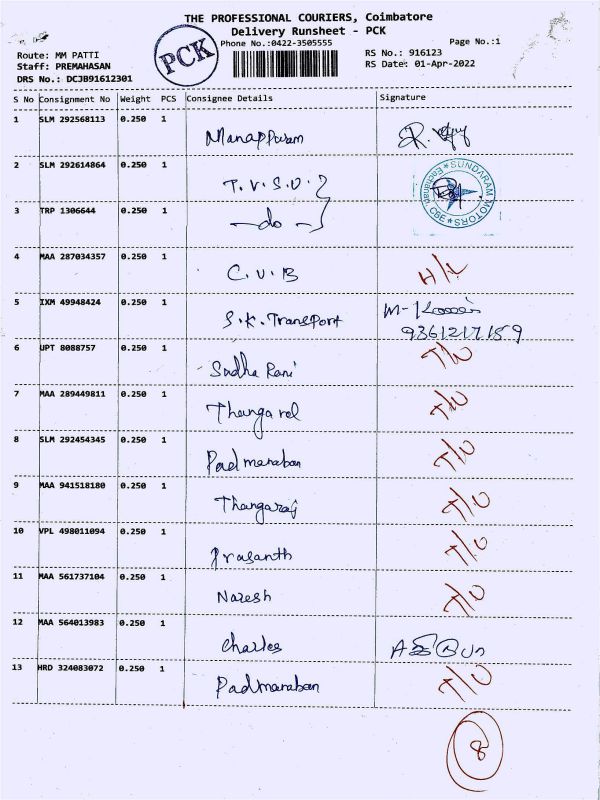 THE PROFESSIONAL COURIERS, Coimbatore
Delivery Runsheet - PCK
PCK
Phone No.:0422-3505555
Page No.:1
Route: MM PATTI
RS No.: 916123
Staff: PREMAHASAN
RS Date: 01-Apr-2022
DRS No.: DCJB91612301
S No Consignment No Weight PCS Consignee Details Signature
1 SLM 292568113 0.250 1 Manappuram
2 SLM 292614864 0.250 1 T.V.S.U. SUNDARAM MOTORS CBE
3 TRP 1306644 0.250 1 -do-
4 MAA 287034357 0.250 1 C.U.B H/L
5 IXM 49948424 0.250 1 S.K.Transport M-
9361217159
6 UPT 8088757 0.250 1 Sudha Rani T/U
7 MAA 289449811 0.250 1 Thangavel T/U
8 SLM 292454345 0.250 1 Padmanaban T/U
9 MAA 941518180 0.250 1 Thangaraj T/U
10 VPL 498011094 0.250 1 Prasanth T/U
11 MAA 561737104 0.250 1 Naresh T/U
12 MAA 564013983 0.250 1 Charles
13 HRD 324083072 0.250 1 Padmanaban T/U
8